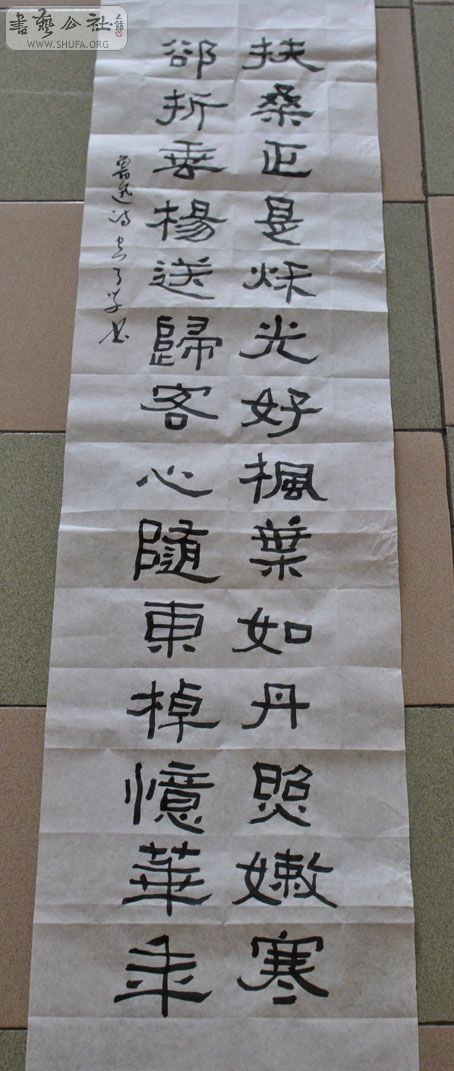 書藝公社
WWW.SHUFA.ORG
扶桑正是秋光好楓葉如丹照嫩寒
卻折垂楊送歸客心隨東棹憶華年
魯迅詩 书